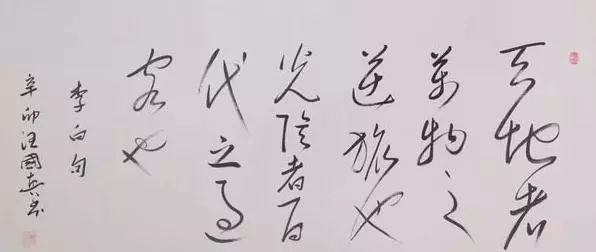 天地者
萬物之
逆旅也
光陰者百
代之過
客也
李白句
辛卯汪國真書